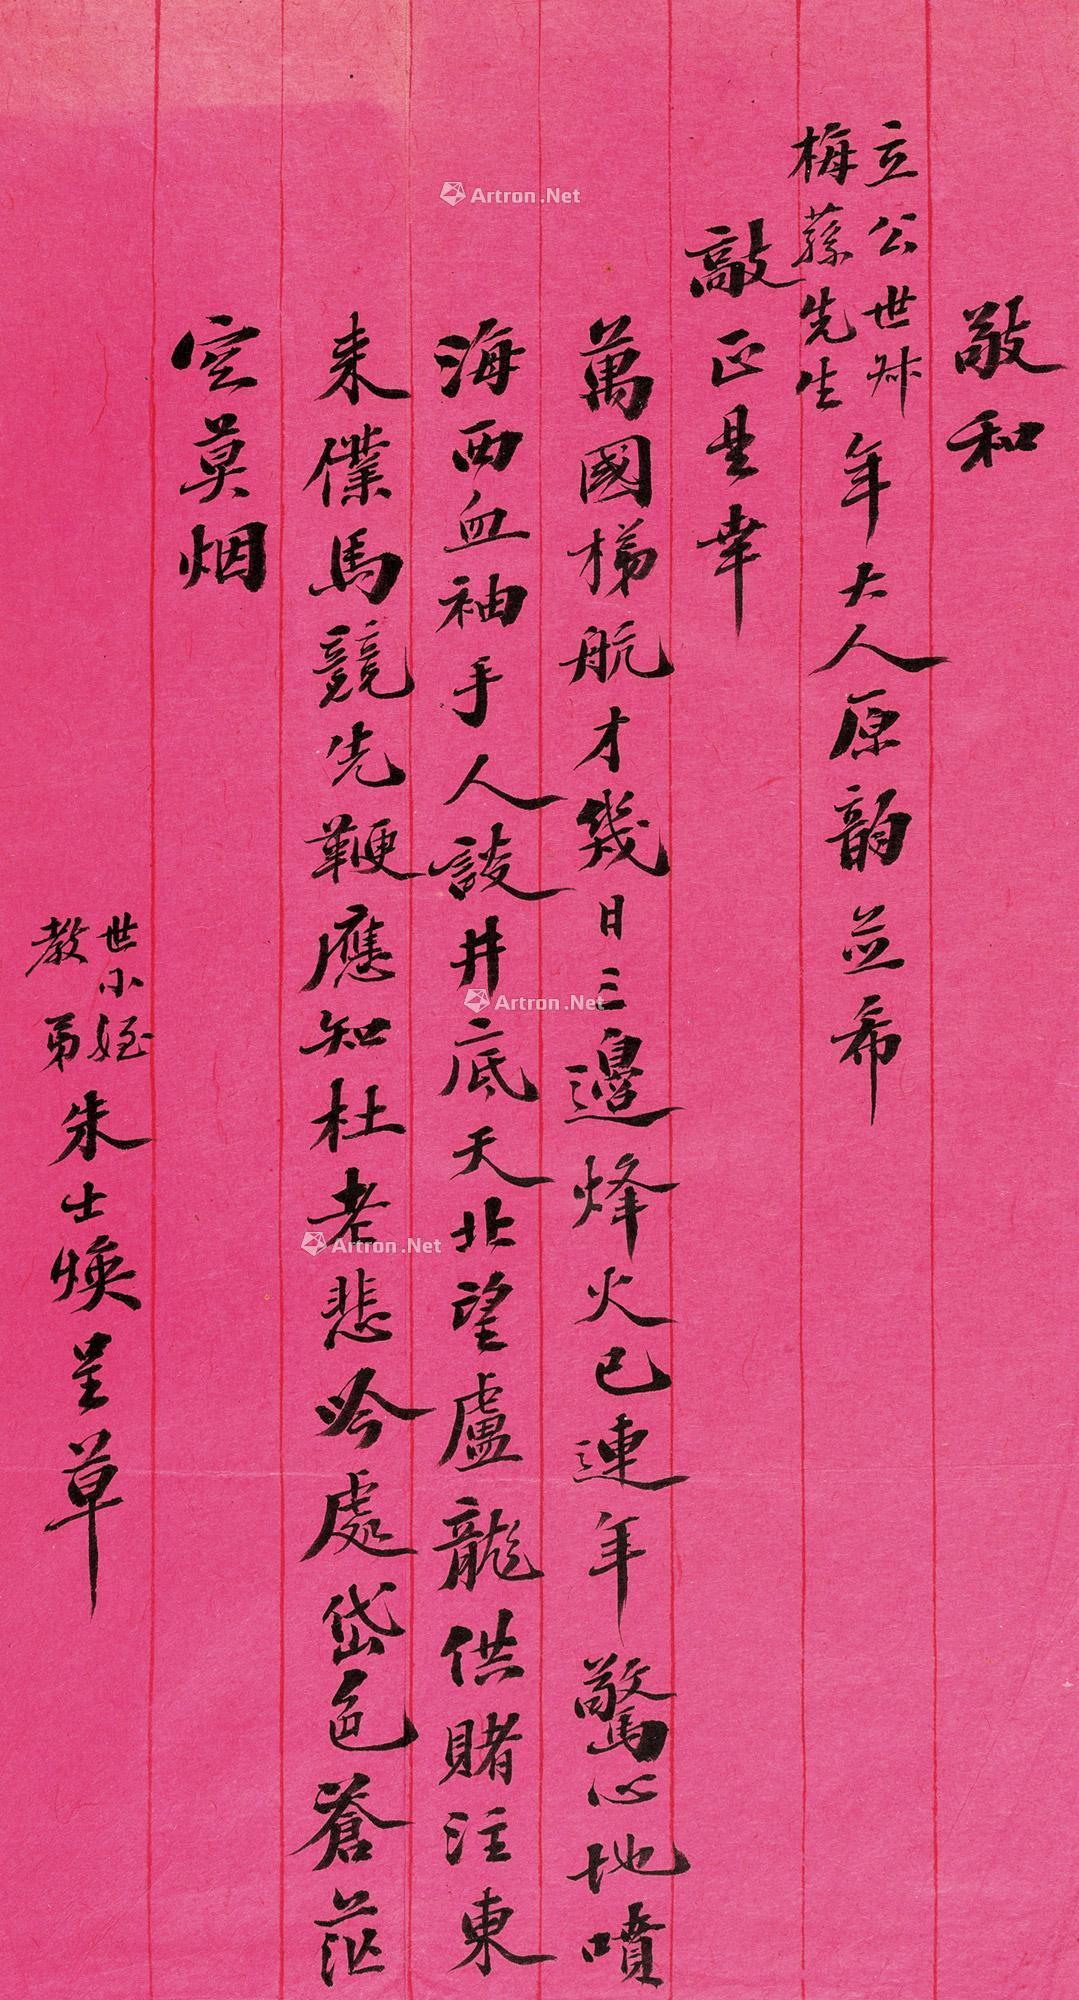 敬和
立公世叔
梅蓀先生
年大人原韵並希
敲正是幸
萬國梯航才幾日三邊烽火已連年驚心地噴
海西血袖手人談井底天北望盧龍供賭注東
来僕馬競先鞭應知杜老悲吟處岱色蒼茫
空莫烟
世小姪
教弟
朱士煥呈草
Artron.Net
Artron.Net
Artron.Net